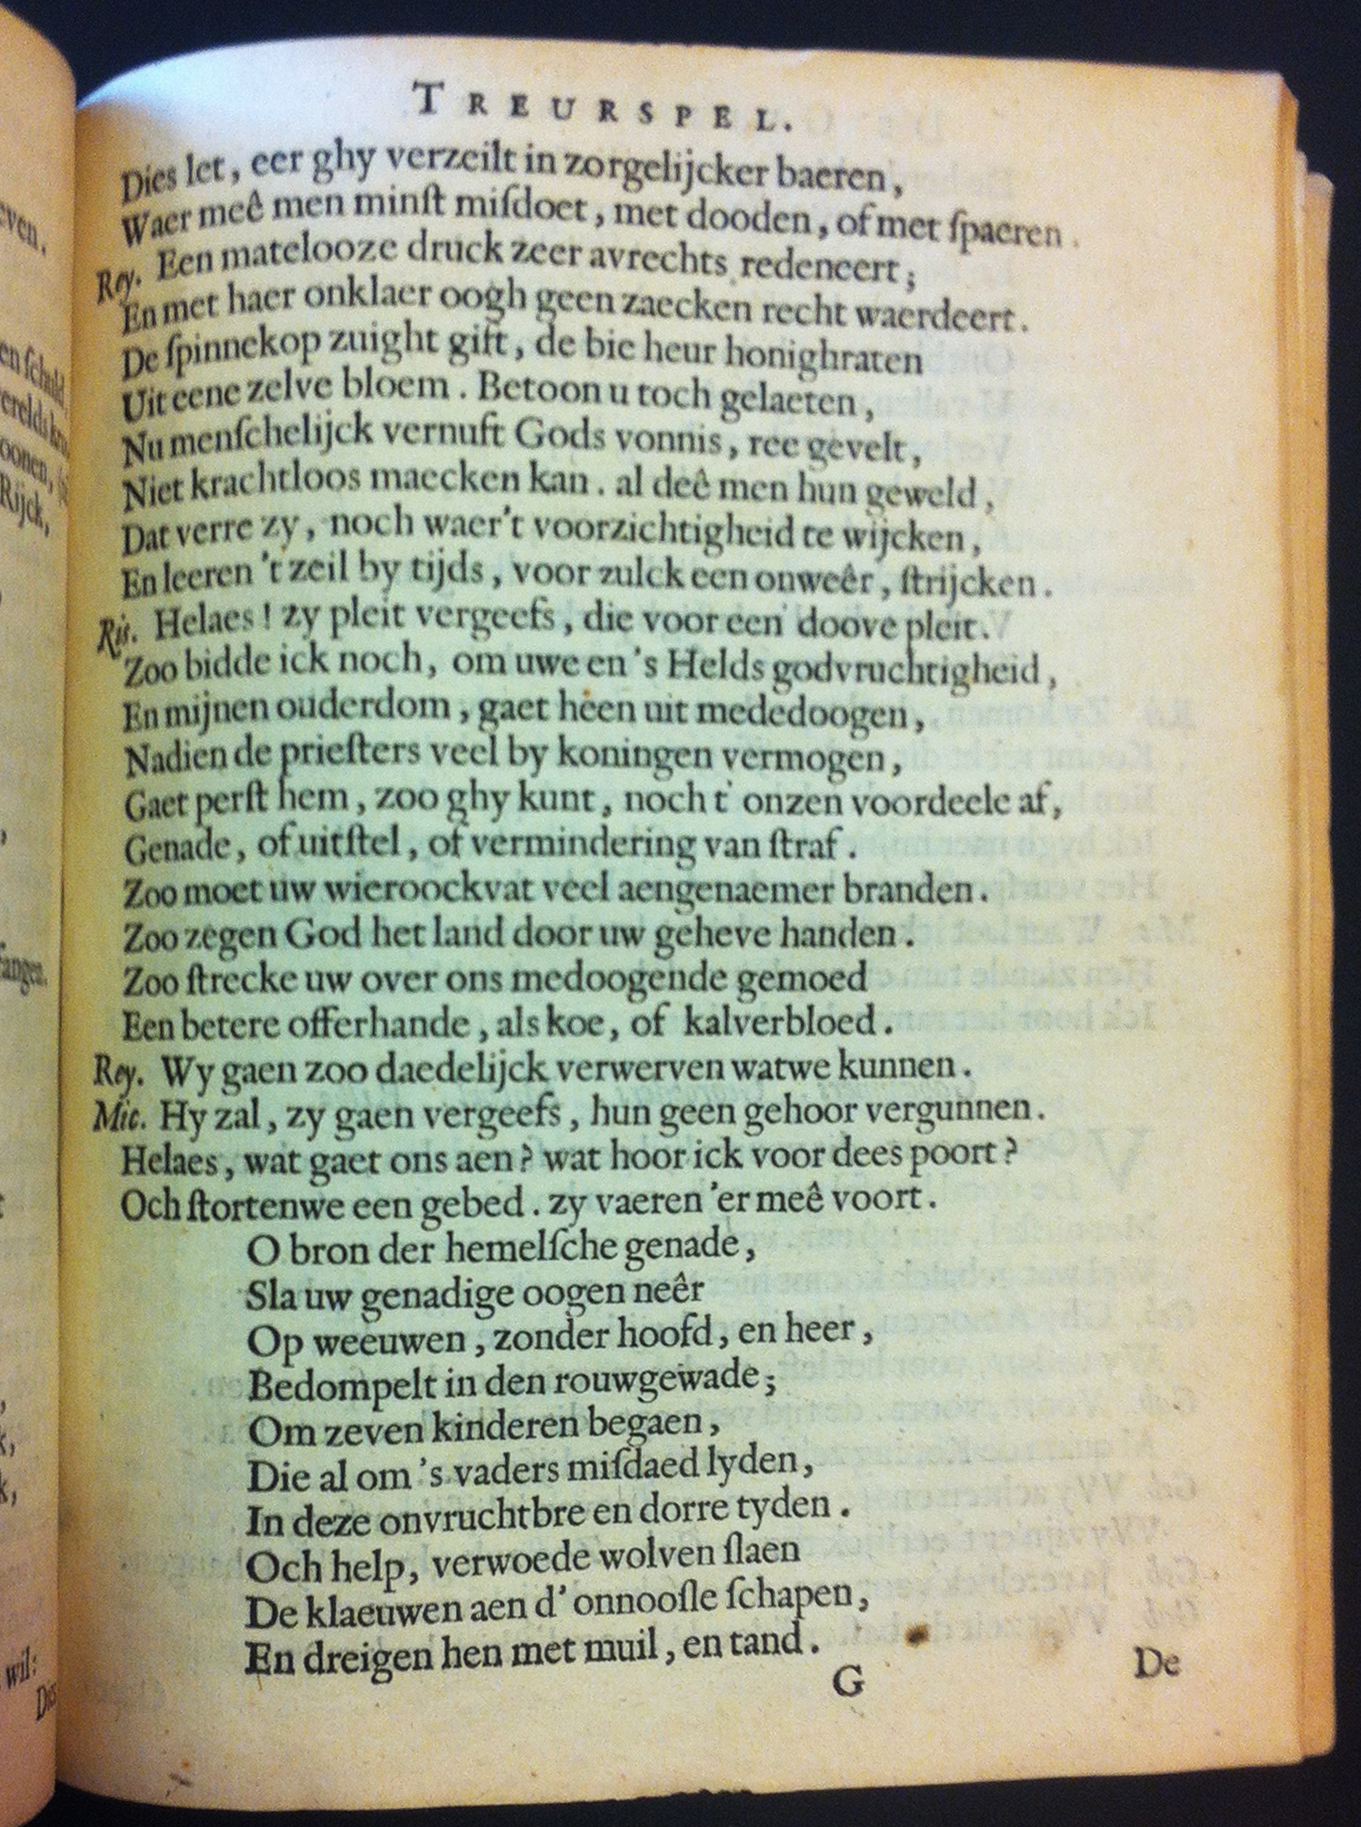 even.
en ſchuld
Rijck,
angen.
wil:
TREURSPEL.
Dies let, eer ghy verzeilt in zorgelijcker baeren,
Waer meê men minſt miſdoet, met dooden, of met ſpaeren.
Rey. Een matelooze druck zeer avrechts redeneert;
En met haer onklaer oogh geen zaecken recht waerdeert.
De ſpinnekop zuight gift, de bie heur honighraten
Uit eene zelve bloem. Betoon u toch gelaeten,
Nu menſchelijck vernuft Gods vonnis, ree gevelt,
Niet krachtloos maecken kan. al deê men hun geweld,
Dat verre zy, noch waer't voorzichtigheid te wijcken,
En leeren 't zeil by tijds, voor zulck een onweêr, ſtrijcken.
Ris. Helaes! zy pleit vergeefs, die voor een doove pleit.
Zoo bidde ick noch, om uwe en 's Helds godvruchtigheid,
En mijnen ouderdom, gaet heen uit mededoogen,
Nadien de prieſters veel by koningen vermogen,
Gaet perſt hem, zoo ghy kunt, noch t' onzen voordeele af,
Genade, of uitſtel, of vermindering van ſtraf.
Zoo moet uw wieroockvat veel aengenaemer branden.
Zoo zegen God het land door uw geheve handen.
Zoo ſtrecke uw over ons medoogende gemoed
Een betere offerhande, als koe, of kalverbloed.
Rey. Wy gaen zoo daedelijck verwerven watwe kunnen.
Mic. Hy zal, zy gaen vergeefs, hun geen gehoor vergunnen.
Helaes, wat gaet ons aen? wat hoor ick voor dees poort?
Och ſtortenwe een gebed. zy vaeren 'er meê voort.
O bron der hemelſche genade,
Sla uw genadige oogen neêr
Op weeuwen, zonder hoofd, en heer,
Bedompelt in den rouwgewade;
Om zeven kinderen begaen,
Die al om 's vaders miſdaed lyden,
In deze onvruchtbre en dorre tyden.
Och help, verwoede wolven ſlaen
De klaeuwen aen d' onnooſle ſchapen,
En dreigen hen met muil, en tand.
G
De